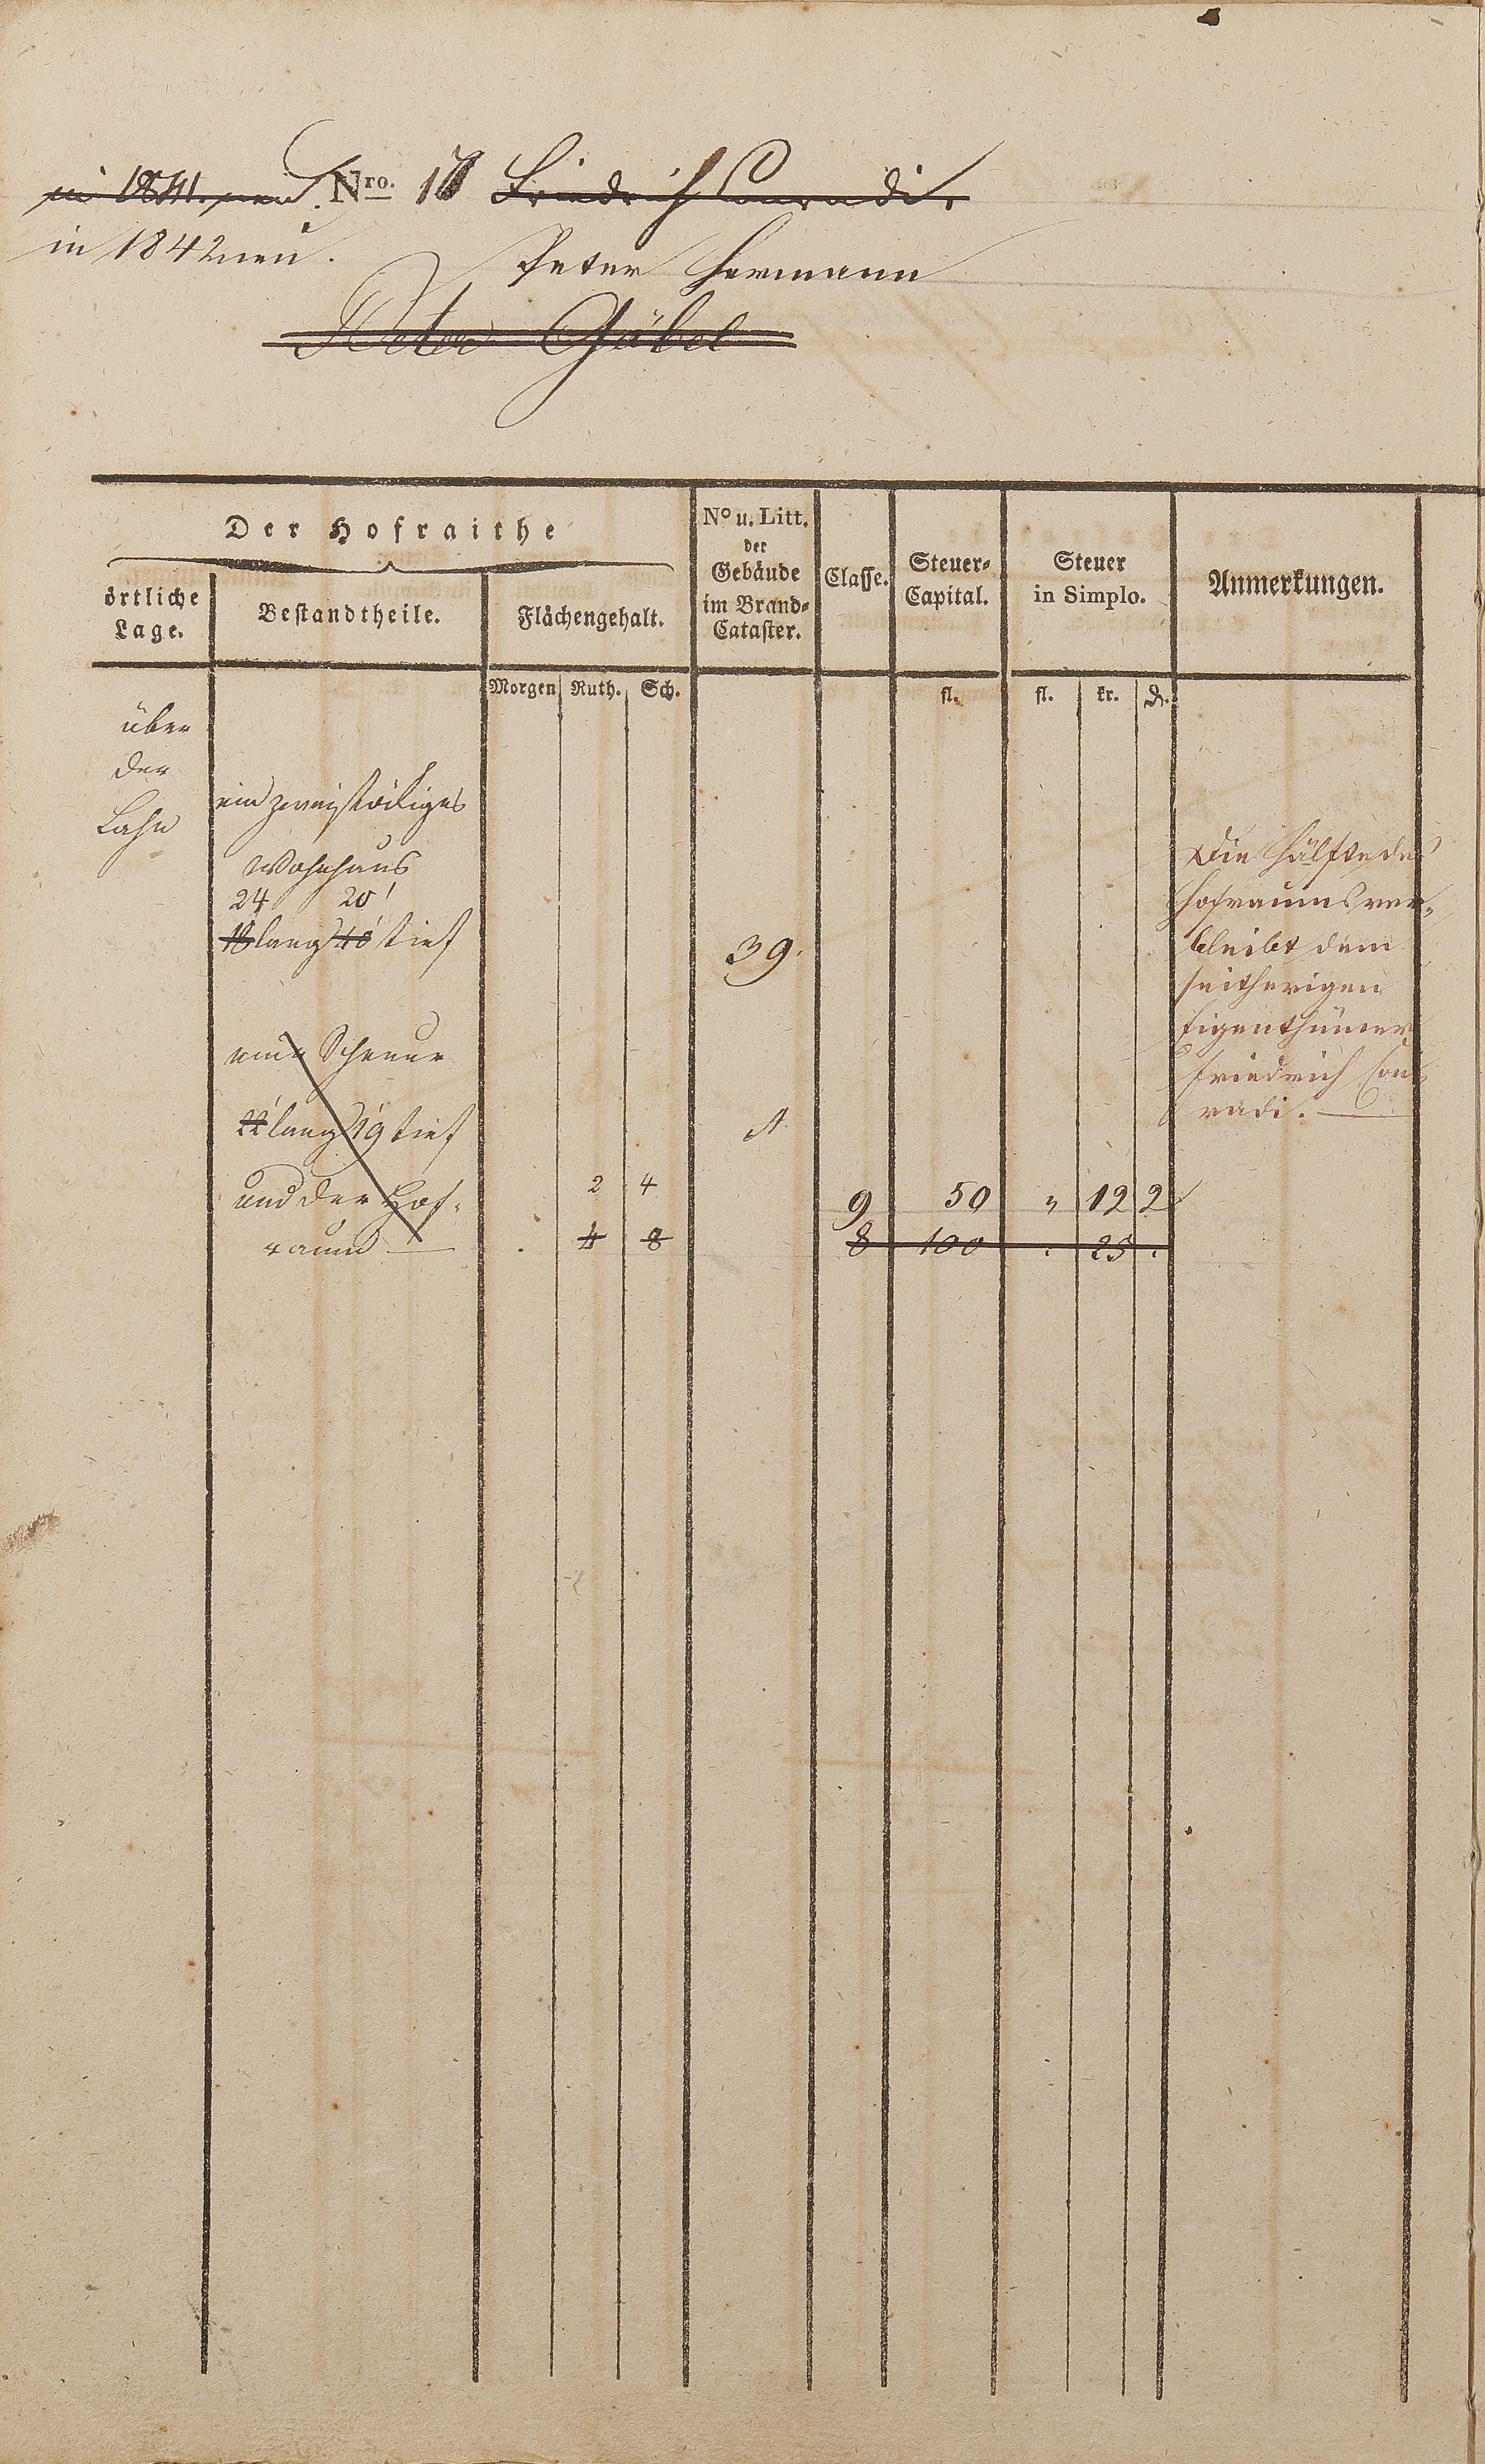 in 1841. neu. Nro. 18 Friedrich Conradi.
in 1842 neu. Peter Hermann
Peter Göbel
Der Hofraithe
örtliche Lage.
Bestandtheile.
Flächengehalt.
No u. Litt. der Gebäude im Brand-Cataster.
Classe.
Steuer-Capital.
Steuer in Simplo.
Anmerkungen.
Morgen Ruth. Sch. fl. fl. kr. d.
über
der
Lahn
ein zweistöckiges
Wohnhaus
24 20'
18 lang 40' tief
39.
eine Scheuer
22' lang 19 tief
A
und der Hof-
raum
2 4 9 50 " 12 2
. 4 8 8 100 . 25 .
Die Hälfte des
Hofraums ver-
bleibt dem
seitherigen
Eigenthümer
Friedrich Con-
radi.